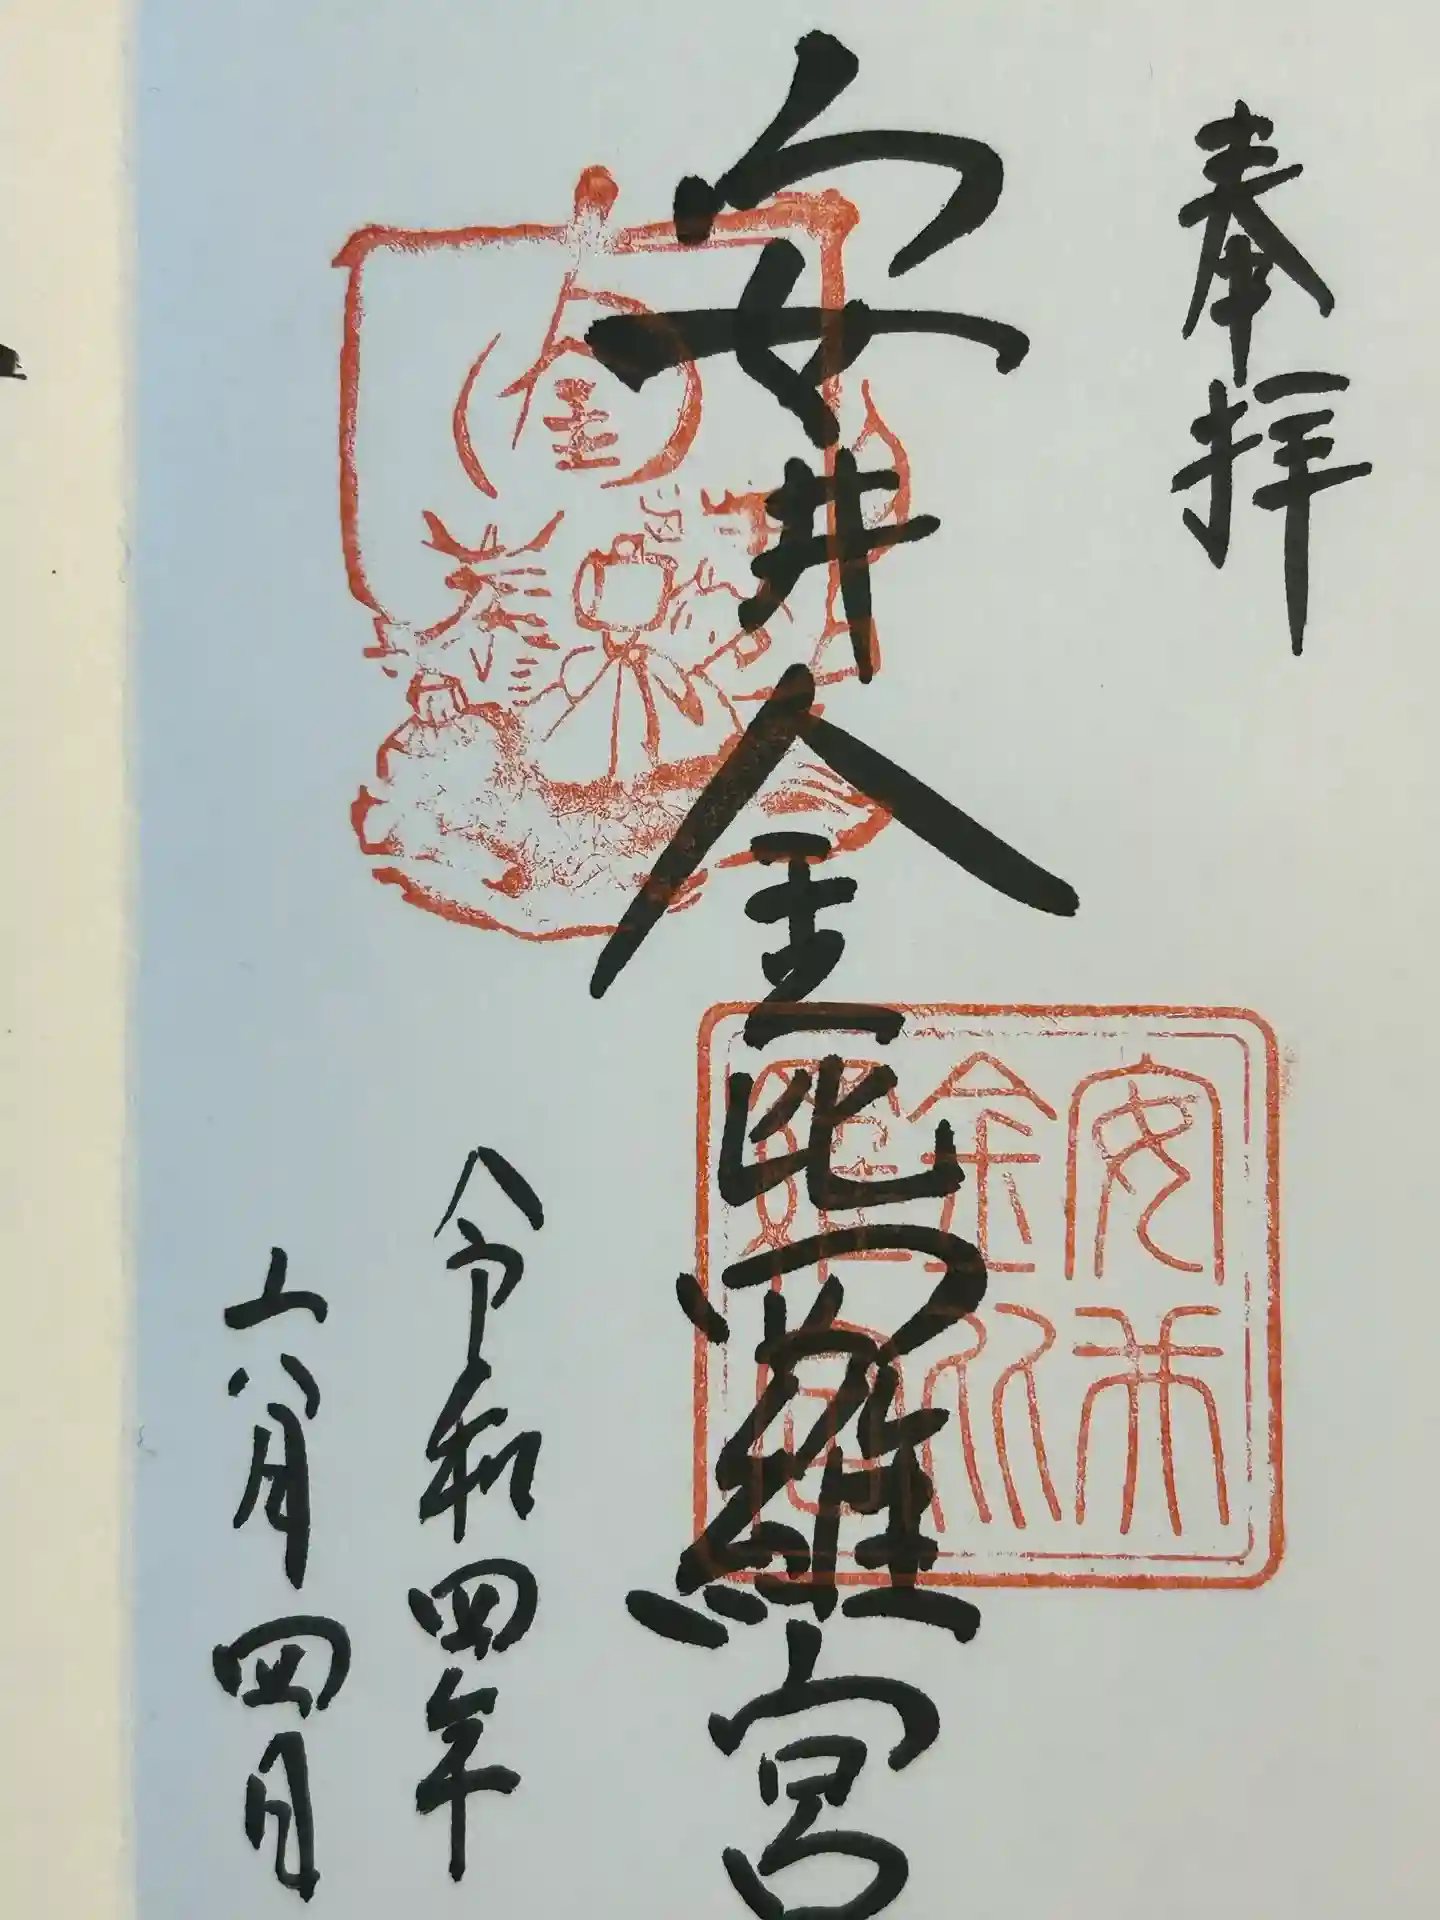 奉拝
安井金比羅宮
令和四年
六月四日
安井
金比